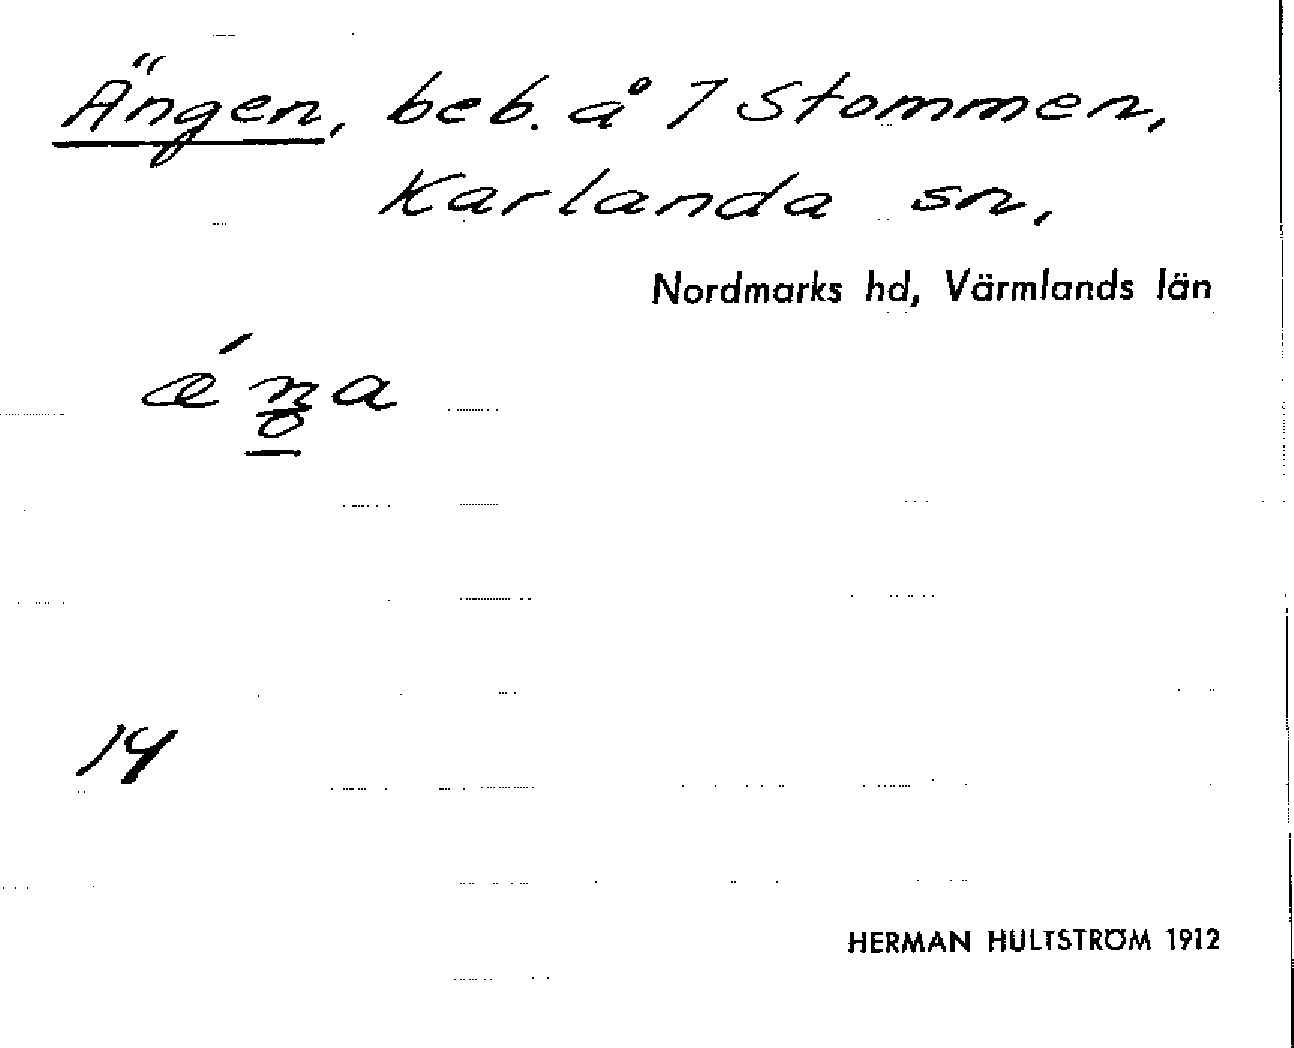 Ängen, beb. å 7 Stommen,
Karlanda sn,
Nordmarks hd, Värmlands län
14
HERMAN HULTSTRÖM 1912